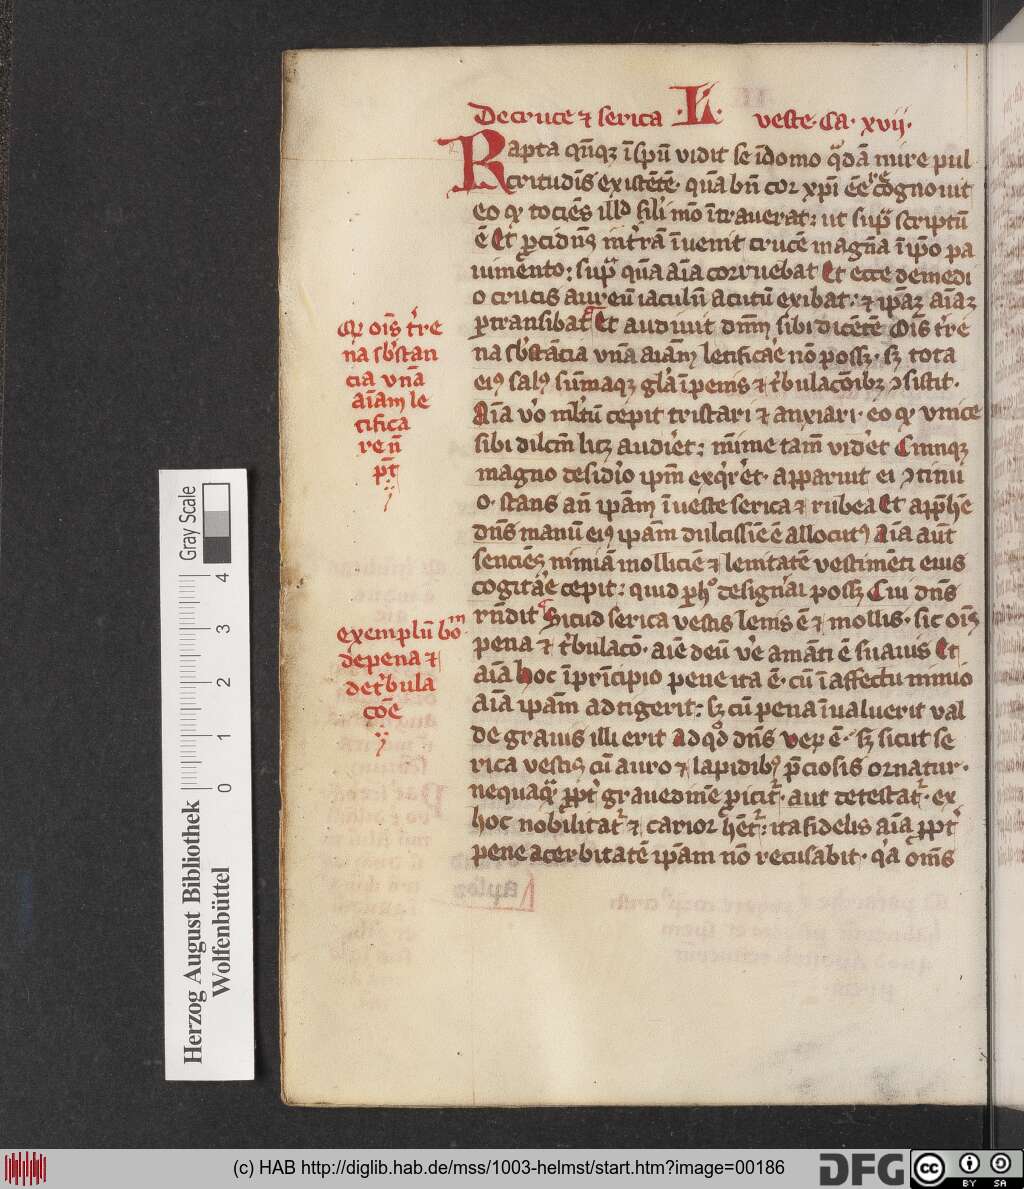 ·L·
De cruce ⁊ serica veste· Ca· xvij·
Rapta qn̄qꝫ ī spū vidit se ī domo q̄dā mire pul
critudīs existētē· quā bn̄ cor xp̄i eē cognouit
eo qꝫ tociēs illd̓ sili mō ītrauerat: ut sup̄ scriptū
ē Et ꝓcidn̄s int̓rā īuenit crucē magnā ī ip̄o pa
uimento: sup̄ quā aīa corruebat Et ecce de medi
o crucis aureū iaculū acutū exibat: ⁊ ip̄aꝫ aīaꝫ
ꝑtransibat Et audiuit dn̄m sibi dicētē Oīs t̓re
na sb̓stācia vnā aīam letificar̄e nō possꝫ· sꝫ tota
eiꝰ salꝰ sūmaqꝫ gl̓a ī penis ⁊ t̓bulacōibꝫ ↄsistit·
Aīa v̓o ml̓tū cepit tristari ⁊ anxiari· eo qꝫ vnice
sibi dilc̄m licꝫ audir̄et: mīime tam̄ vider̄et Cumqꝫ
magno desid̓io ip̄m exq̓r̄et· apparuit ei ↄtinu
o· stans an̄ ip̄am ī veste serica ⁊ rubea Et app̄hē
dn̄s manū eiꝰ ip̄am dulcissīe ē allocutꝰ Aīa aūt
senciēs nimiā molliciē ⁊ lenitatē vestimēti eius
cogitar̄e cepit: quid ꝑ h̓ designāi possꝫ Cui dn̄s
rn̄dit Sicud serica vestis lenis ē ⁊ mollis· sic oīs
pena ⁊ t̓bulacō· aīe deū v̓e amāti ē suauis Et
aīa hoc ī prīcipio pene ita ē· cū ī affectu nimio
aīā ipam̄ adtigerit: sꝫ cū pena īualuerit val
de grauis illi erit Ad qd̓ dn̄s veꝝ ē· sꝫ sicut se
rica vestis cū auro ⁊ lapidibꝰ p̄ciosis ornatur·
nequaq̄ ꝓpt̓ grauedinē ꝓicit̓· aut detestat̓· ex
hoc nobilitat̓ ⁊ carior hēt̓: ita fidelis aīa ꝓpt̓
pene acerbitatē ip̄am nō recusabit· q̓a om̄s
Qꝫ oīs t̓re
na sb̓stan
cia vnā
aīam le
tifica
re n̄
pt̄
exemplū bom̄
de pena ⁊
de t̓bula
cōe
Herzog August Bibliothek
Wolfenbüttel
Gray Scale
0 1 2 3 4
(c) HAB http://diglib.hab.de/mss/1003-helmst/start.htm?image=00186
DFG
cc
BY SA